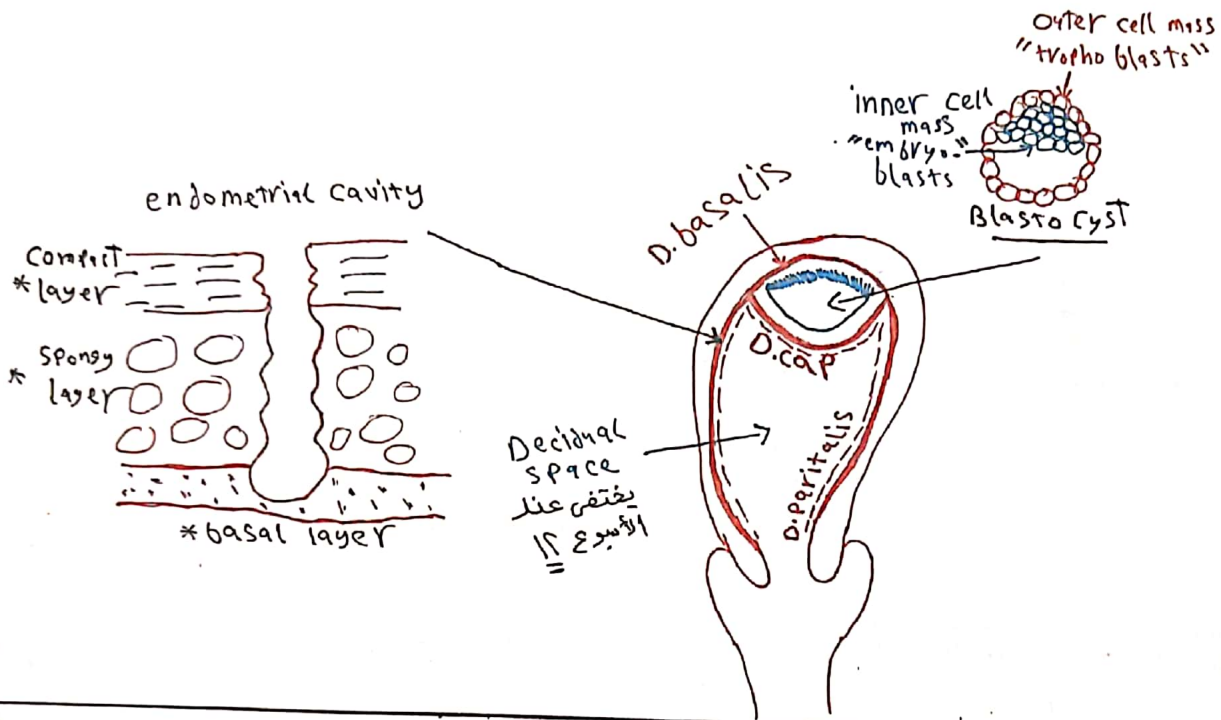 outer cell mass
"tropho blasts"
inner cell
mass
"embryo-"
blasts
Blasto cyst
endometrial cavity
Compact
* layer
Spongy
* layer
* basal layer
D.basalis
D.cap
D.paritalis
Decidual
space
يختفى عند
الأسبوع ١٢